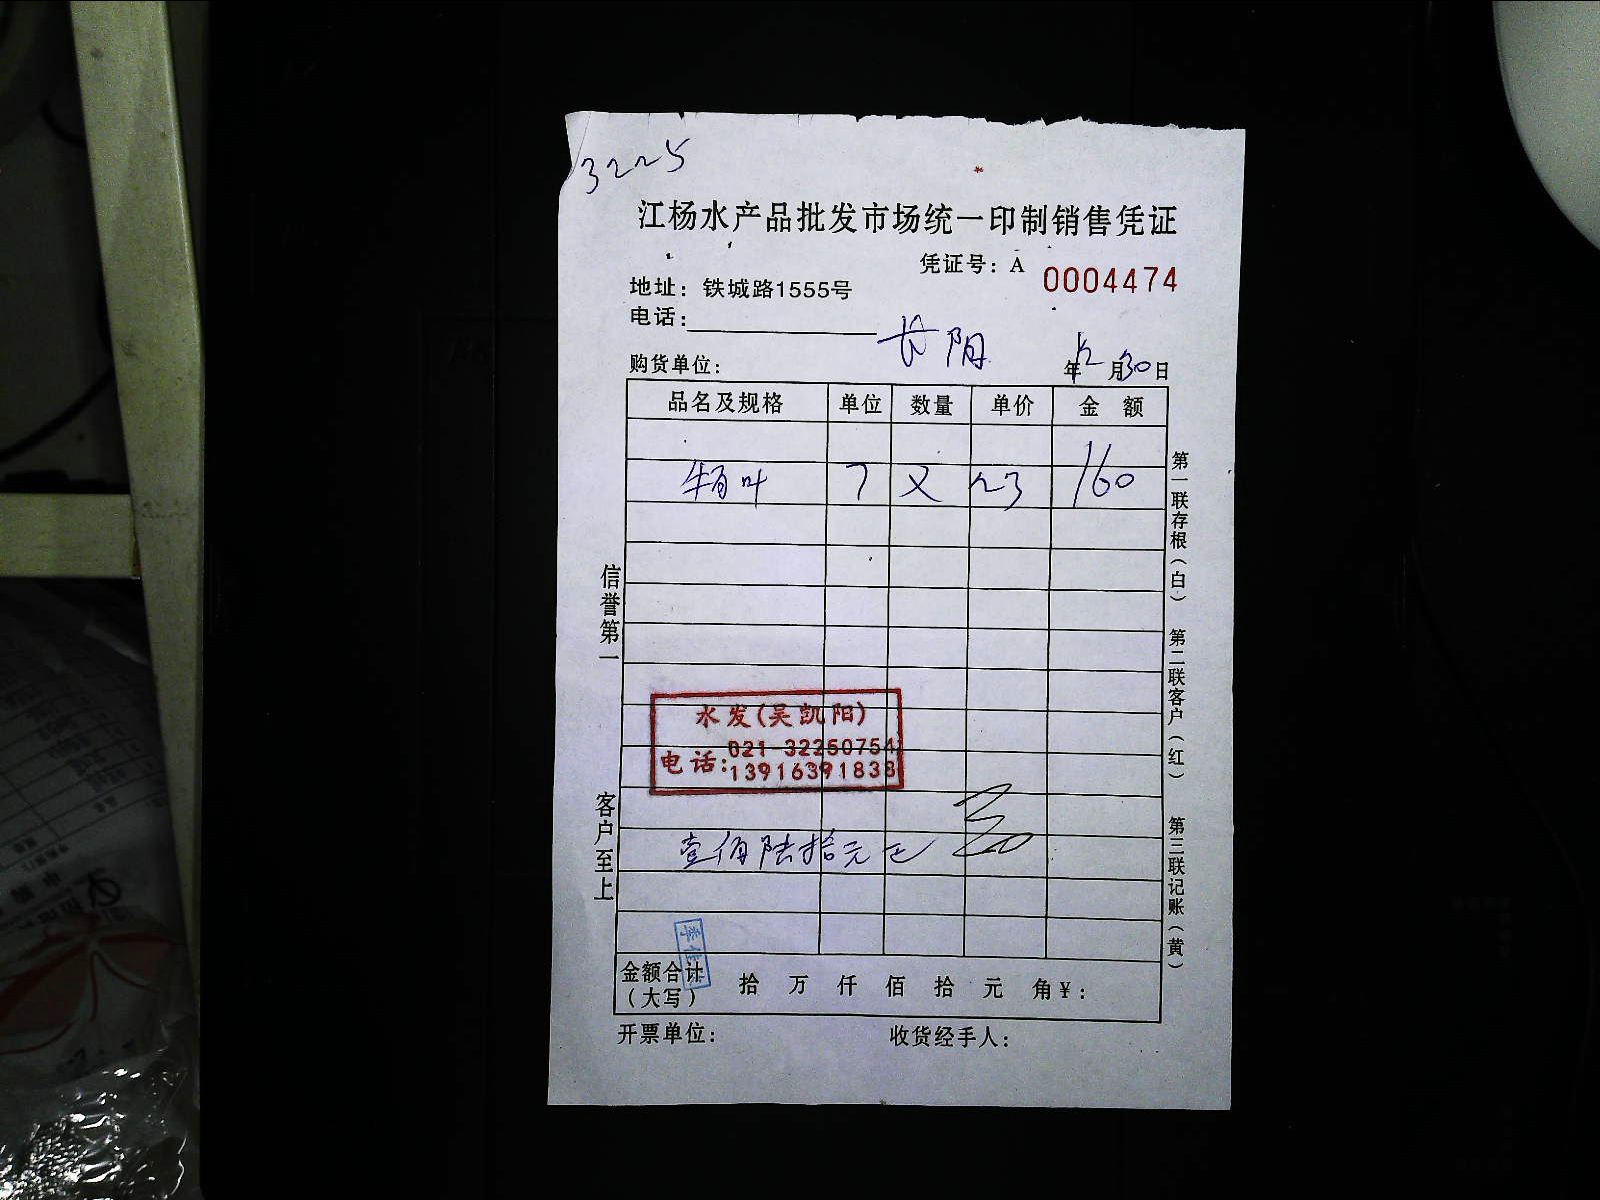 3225
江杨水产品批发市场统一印制销售凭证
凭证号：A 0004474
地址：铁城路1555号
电话：
购货单位： 长阳 年12月30日
品名及规格 单位 数量 单价 金额
牛百叶 7 又 23 160
水发(吴凯阳)
电话：021-32250754
13916391838
壹佰陆拾元正
金额合计（大写） 拾 万 仟 佰 拾 元 角 ¥：
开票单位： 收货经手人：
信誉第一
客户至上
第一联存根（白） 第二联客户（红） 第三联记账（黄）